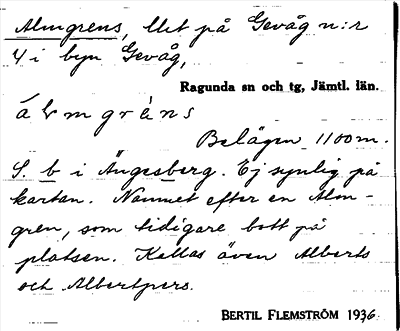 Almgrens, llet på Gevåg n:r
4 i byn Gevåg,
Ragunda sn och tg, Jämtl. län.
á l m g r è n s
Belägen 1100 m.
S. b i Ängesberg. Ej synlig på
kartan. Namnet efter en Alm-
gren, som tidigare bott på
platsen. Kallas även Alberts
och Albertpers.
BERTIL FLEMSTRÖM 1936